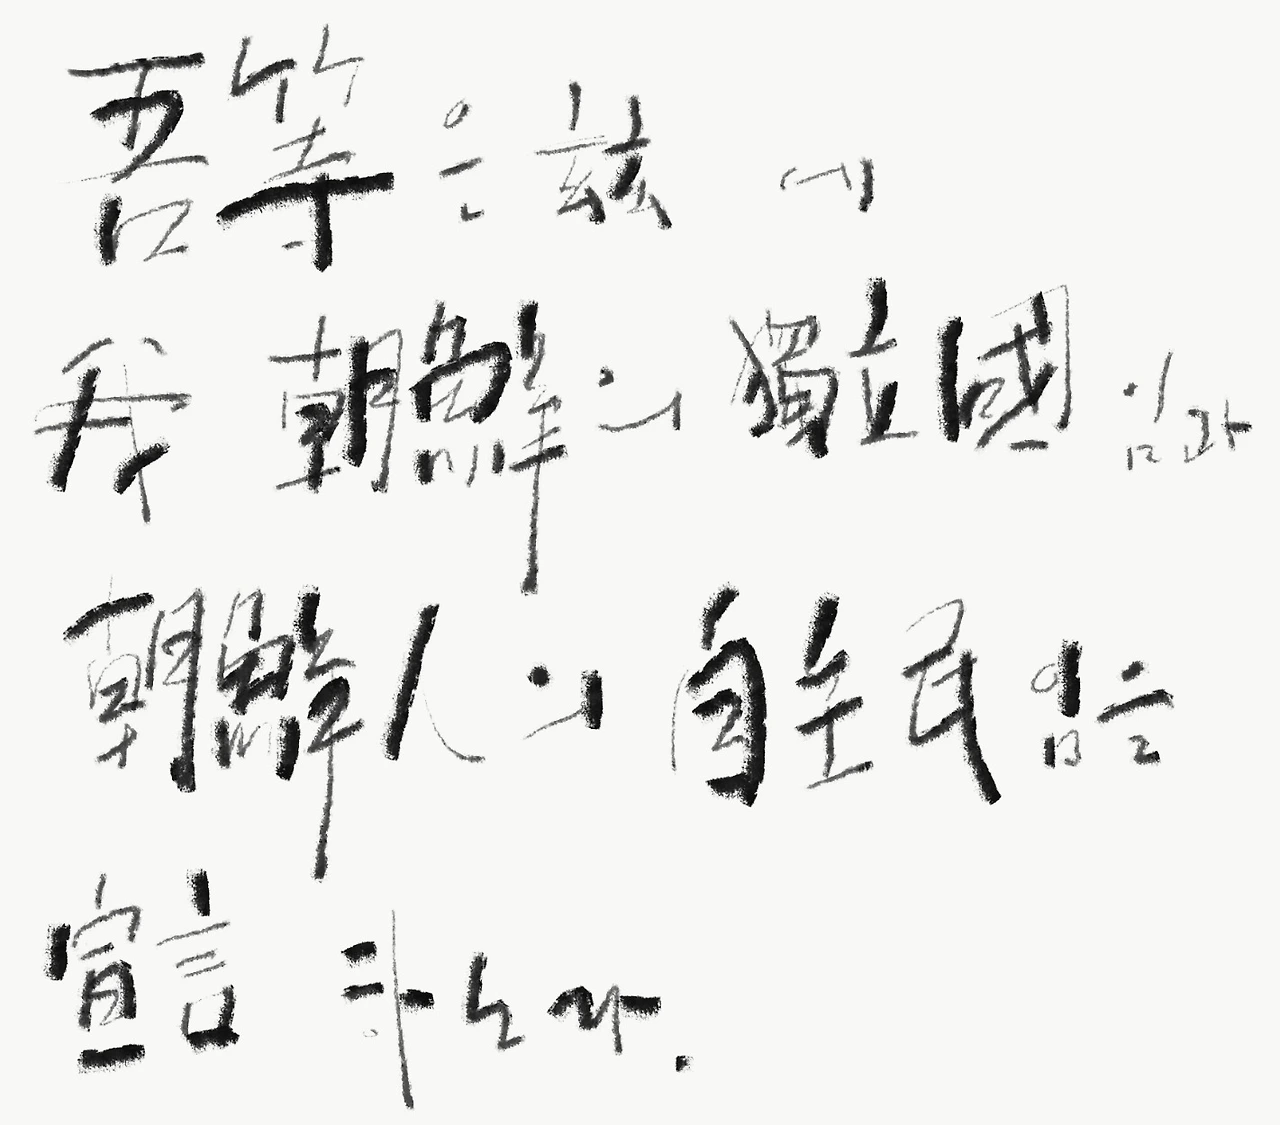 吾等은 玆에
我 朝鮮의 獨立國임과
朝鮮人의 自主民임을
宣言하노라.